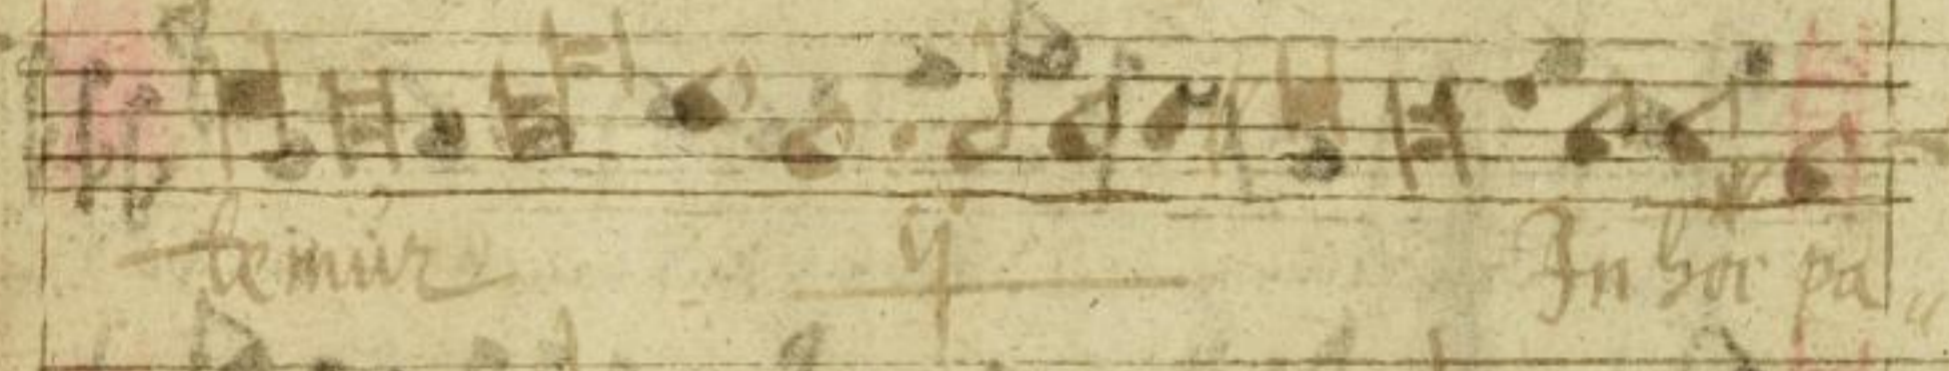 temur ij In hoc pa